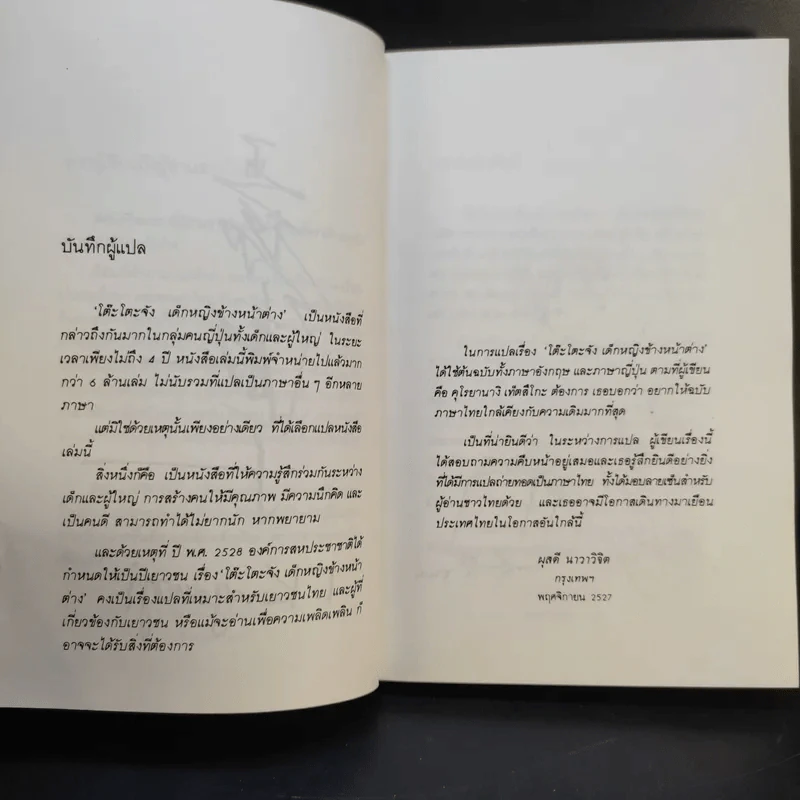 บันทึกผู้แปล
'โต๊ะโตะจัง เด็กหญิงข้างหน้าต่าง' เป็นหนังสือที่
กล่าวถึงกันมากในกลุ่มคนญี่ปุ่นทั้งเด็กและผู้ใหญ่ ในระยะ
เวลาเพียงไม่ถึง 4 ปี หนังสือเล่มนี้พิมพ์จำหน่ายไปแล้วมาก
กว่า 6 ล้านเล่ม ไม่นับรวมที่แปลเป็นภาษาอื่น ๆ อีกหลาย
ภาษา
แต่มิใช่ด้วยเหตุนั้นเพียงอย่างเดียว ที่ได้เลือกแปลหนังสือ
เล่มนี้
สิ่งหนึ่งก็คือ เป็นหนังสือที่ให้ความรู้สึกร่วมกันระหว่าง
เด็กและผู้ใหญ่ การสร้างคนให้มีคุณภาพ มีความนึกคิด และ
เป็นคนดี สามารถทำได้ไม่ยากนัก หากพยายาม
และด้วยเหตุที่ ปี พ.ศ. 2528 องค์การสหประชาชาติได้
กำหนดให้เป็นปีเยาวชน เรื่อง 'โต๊ะโตะจัง เด็กหญิงข้างหน้า
ต่าง' คงเป็นเรื่องแปลที่เหมาะสำหรับเยาวชนไทย และผู้ที่
เกี่ยวข้องกับเยาวชน หรือแม้จะอ่านเพื่อความเพลิดเพลิน ก็
อาจจะได้รับสิ่งที่ต้องการ
ในการแปลเรื่อง 'โต๊ะโตะจัง เด็กหญิงข้างหน้าต่าง'
ได้ใช้ต้นฉบับทั้งภาษาอังกฤษ และภาษาญี่ปุ่น ตามที่ผู้เขียน
คือ คุโรยานางิ เท็ตสึโกะ ต้องการ เธอบอกว่า อยากให้ฉบับ
ภาษาไทยใกล้เคียงกับความเดิมมากที่สุด
เป็นที่น่ายินดีว่า ในระหว่างการแปล ผู้เขียนเรื่องนี้
ได้สอบถามความคืบหน้าอยู่เสมอและเธอรู้สึกยินดีอย่างยิ่ง
ที่ได้มีการแปลถ่ายทอดเป็นภาษาไทย ทั้งได้มอบลายเซ็นสำหรับ
ผู้อ่านชาวไทยด้วย และเธออาจมีโอกาสเดินทางมาเยือน
ประเทศไทยในโอกาสอันใกล้นี้
ผุสดี นาวาวิจิต
กรุงเทพฯ
พฤศจิกายน 2527